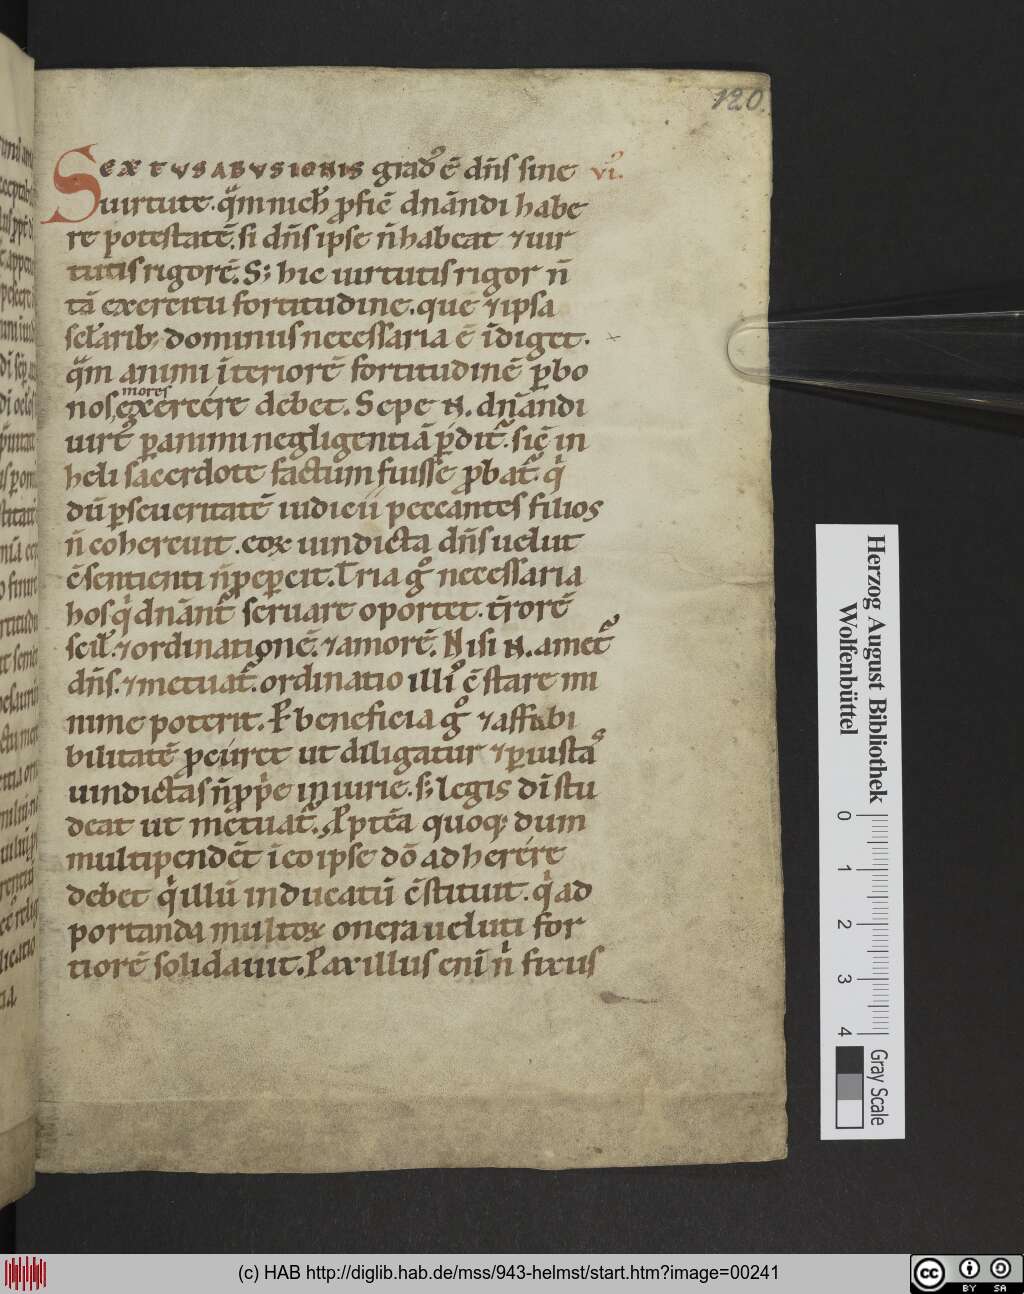 120.
SEXTUS ABUSIONIS grad᷒ ē dn̄s sine vi᷒.
uirtute. qͣm nich̄ ꝓfic̄ dnāndi habe
re potestatē. si dn̄s ipse n̄ habeat ⁊ uir
tutis rigorē. S; hic uirtutis rigor n̄
tā exercitu fortitudine. que ⁊ ipsa
scl̄arib; dominis necessaria ē īdiget.
qͣm animi īteriorē fortitudinē ꝑ bo
nos mores exercere debet. Sepe .N. dnāndi
uirt᷒ ꝑ animi negligentiā ꝑdit᷑. sic̄ in
heli sacerdote factum fuisse ꝓbat᷑. qͥ
dū ꝑseueritatē iudicii peccantes filios
n̄ cohercuit. eoꝝ uindicta dn̄s uelut
c̄sentienti n̄ peꝑcit. Tria gͦ necessaria
hos qͥ dnānt᷑ seruare oportet. t̄rorē
scil᷒. ⁊ ordinationē. ⁊ amorē. Nisi .N. amet᷑
dn̄s. ⁊ metuat᷑. ordinatio illi᷒ c̄stare mi
nime poterit. P̄ beneficia gͦ ⁊ affabi
bilitatē ꝓcuret ut diligatur ⁊ ꝑ iusta᷒
uindictas n̄ ꝓpͥe iniurie. s; legis dī stu
deat ut metuat᷑. Ꝓptēa quoq; dum
multi pendēt ī eo ipse dō adherere
debet qͥ illū in ducatū c̄stituit. qͥ ad
portanda multoꝝ onera ueluti for
tiorē solidauit. Paxillus enī nͥ fixus
Herzog August Bibliothek
Wolfenbüttel
0 1 2 3 4
Gray Scale
(c) HAB http://diglib.hab.de/mss/943-helmst/start.htm?image=00241
cc BY SA